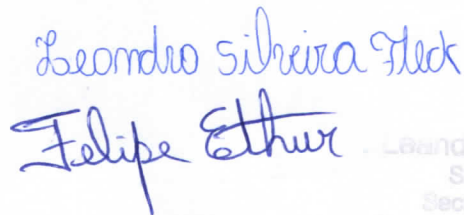 Leandro Silveira Fleck
Felipe Ethur
Leand
S
Sec